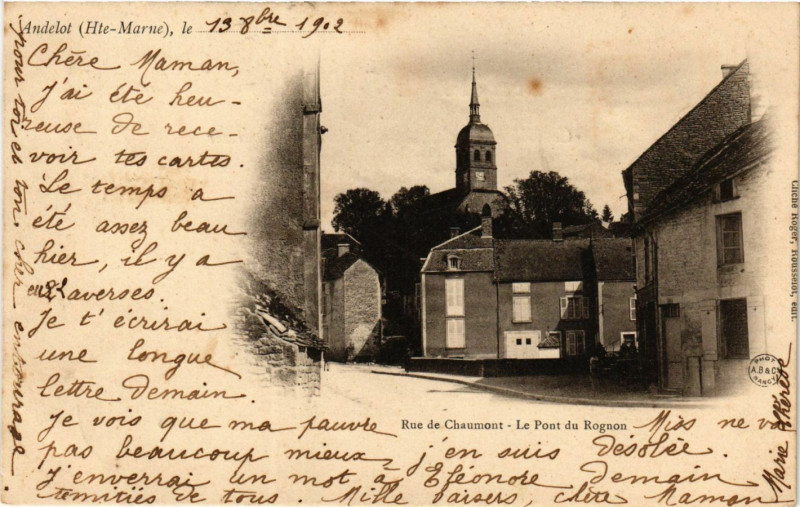 Andelot (Hte-Marne), le 13 8bre 1902
Chère Maman,
J'ai été heu-
reuse de rece-
voir tes cartes.
Le temps a
été assez beau
hier, il y a
eu 2 averses.
Je t'écrirai
une longue
lettre demain.
Je vois que ma pauvre Miss ne va
pas beaucoup mieux, j'en suis désolée.
J'enverrai un mot à Eléonore demain
tamitiés de tous. Mille baisers, chère Maman
Marie Thérèse
pour toi et ton cher entourage.
Rue de Chaumont - Le Pont du Rognon
Cliché Roger, Rousselot, édit.
PHOT
A.B & C°
NANCY